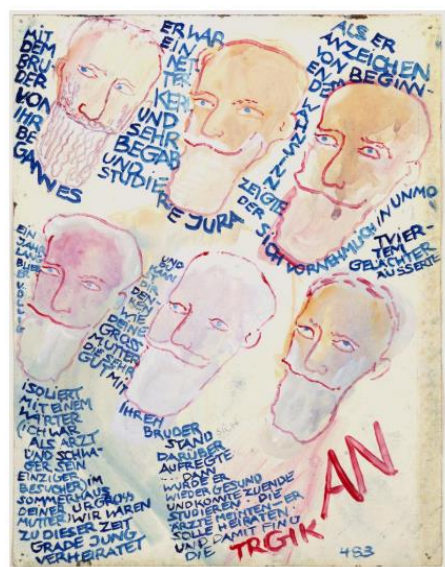 MIT
DEM
BRU-
DER
VON
IHR
BE
GANN ES
ER WAR
EIN
NET
TER
KER
UND
SEHR
BEGAB
UND
STUDIE
RE JURA
ALS ER
ANZEICHEN
VON BEGINN-
ENDEM WAHNSINN
ZEIGTE
DER
SICH VORNEHMLICH IN UNMO
TVIER-
TEM
GELÄCHTER
ÄUSSERTE
EIN
JAHR
LANG
BLIEB
ER VÖLLIG
ISOLIERT
MIT EINEM
WÄRTER
(ICH WAR
ALS ARZT
UND SCHWA-
GER SEIN
EINZIGER
BESUCHER) IM
SOMMERHAUS
DEINER URGROSS
MUTTER) WIR WAREN
ZU DIESER ZEIT
GRADE JUNG
VERHEIRATET
UND
KANN
DIR
DEN
KEN
WIE
DEINE
GROSS
MUTTER
DIE SEHR
GUT MIT
IHREM
BRUDER
STAND
DARÜBER
AUFREGTE
WURDE ER
WIEDER GESUND
UND KONNTE ZUENDE
STUDIEREN – DIE
ÄRZTE MEINTEN – ER
SOLLE HEIRATEN
UND DAMIT FING
DIE TRGIK AN
483